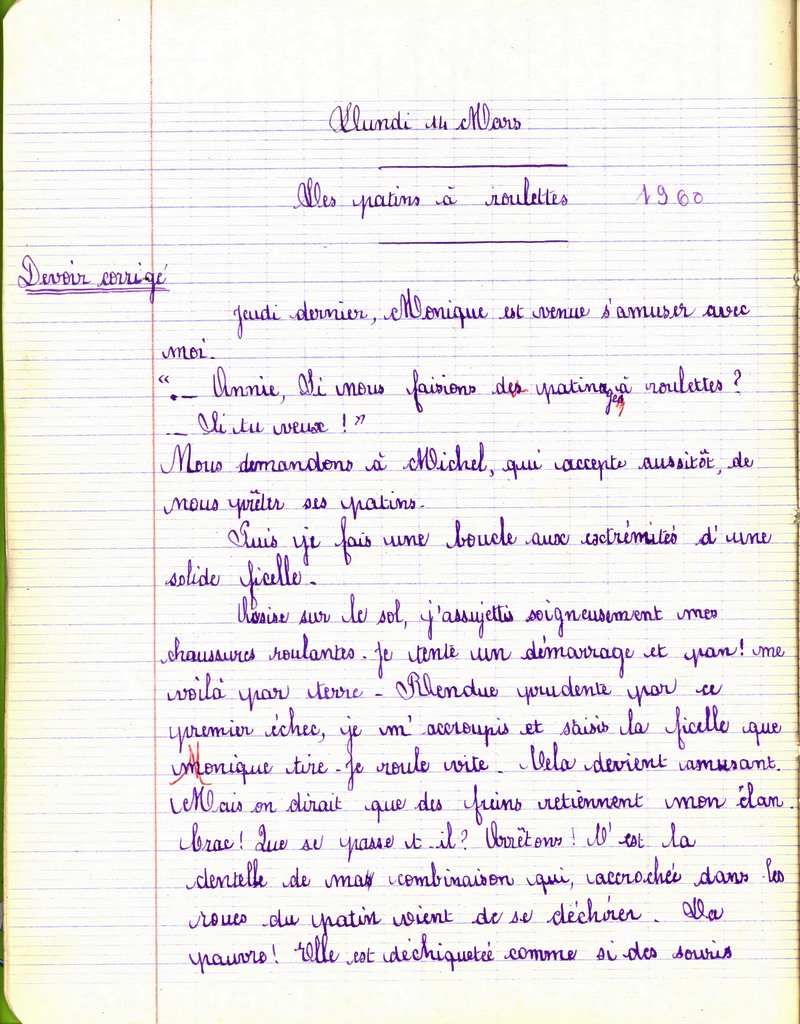 Lundi 14 Mars
Les patins à roulettes 1960
Devoir corrigé
Jeudi dernier, Monique est venue s'amuser avec
moi.
"._ Annie, Si nous faisions des patinages à roulettes ?
_ Si tu veux ! "
Nous demandons à Michel, qui accepte aussitôt, de
nous prêter ses patins.
Puis je fais une boucle aux extrémités d'une
solide ficelle.
Assise sur le sol, j'assujettis soigneusement mes
chaussures roulantes. Je tente un démarrage et pan! me
voilà par terre - Rendue prudente par ce
premier échec, je m'accroupis et saisis la ficelle que
Monique tire. Je roule vite. Cela devient amusant.
Mais on dirait que des freins retiennent mon élan.
Crac! Que se passe t-il? Arrêtons! C'est la
dentelle de ma combinaison qui, accrochée dans les
roues du patin vient de se déchirer. La
pauvre! Elle est déchiquetée comme si des souris